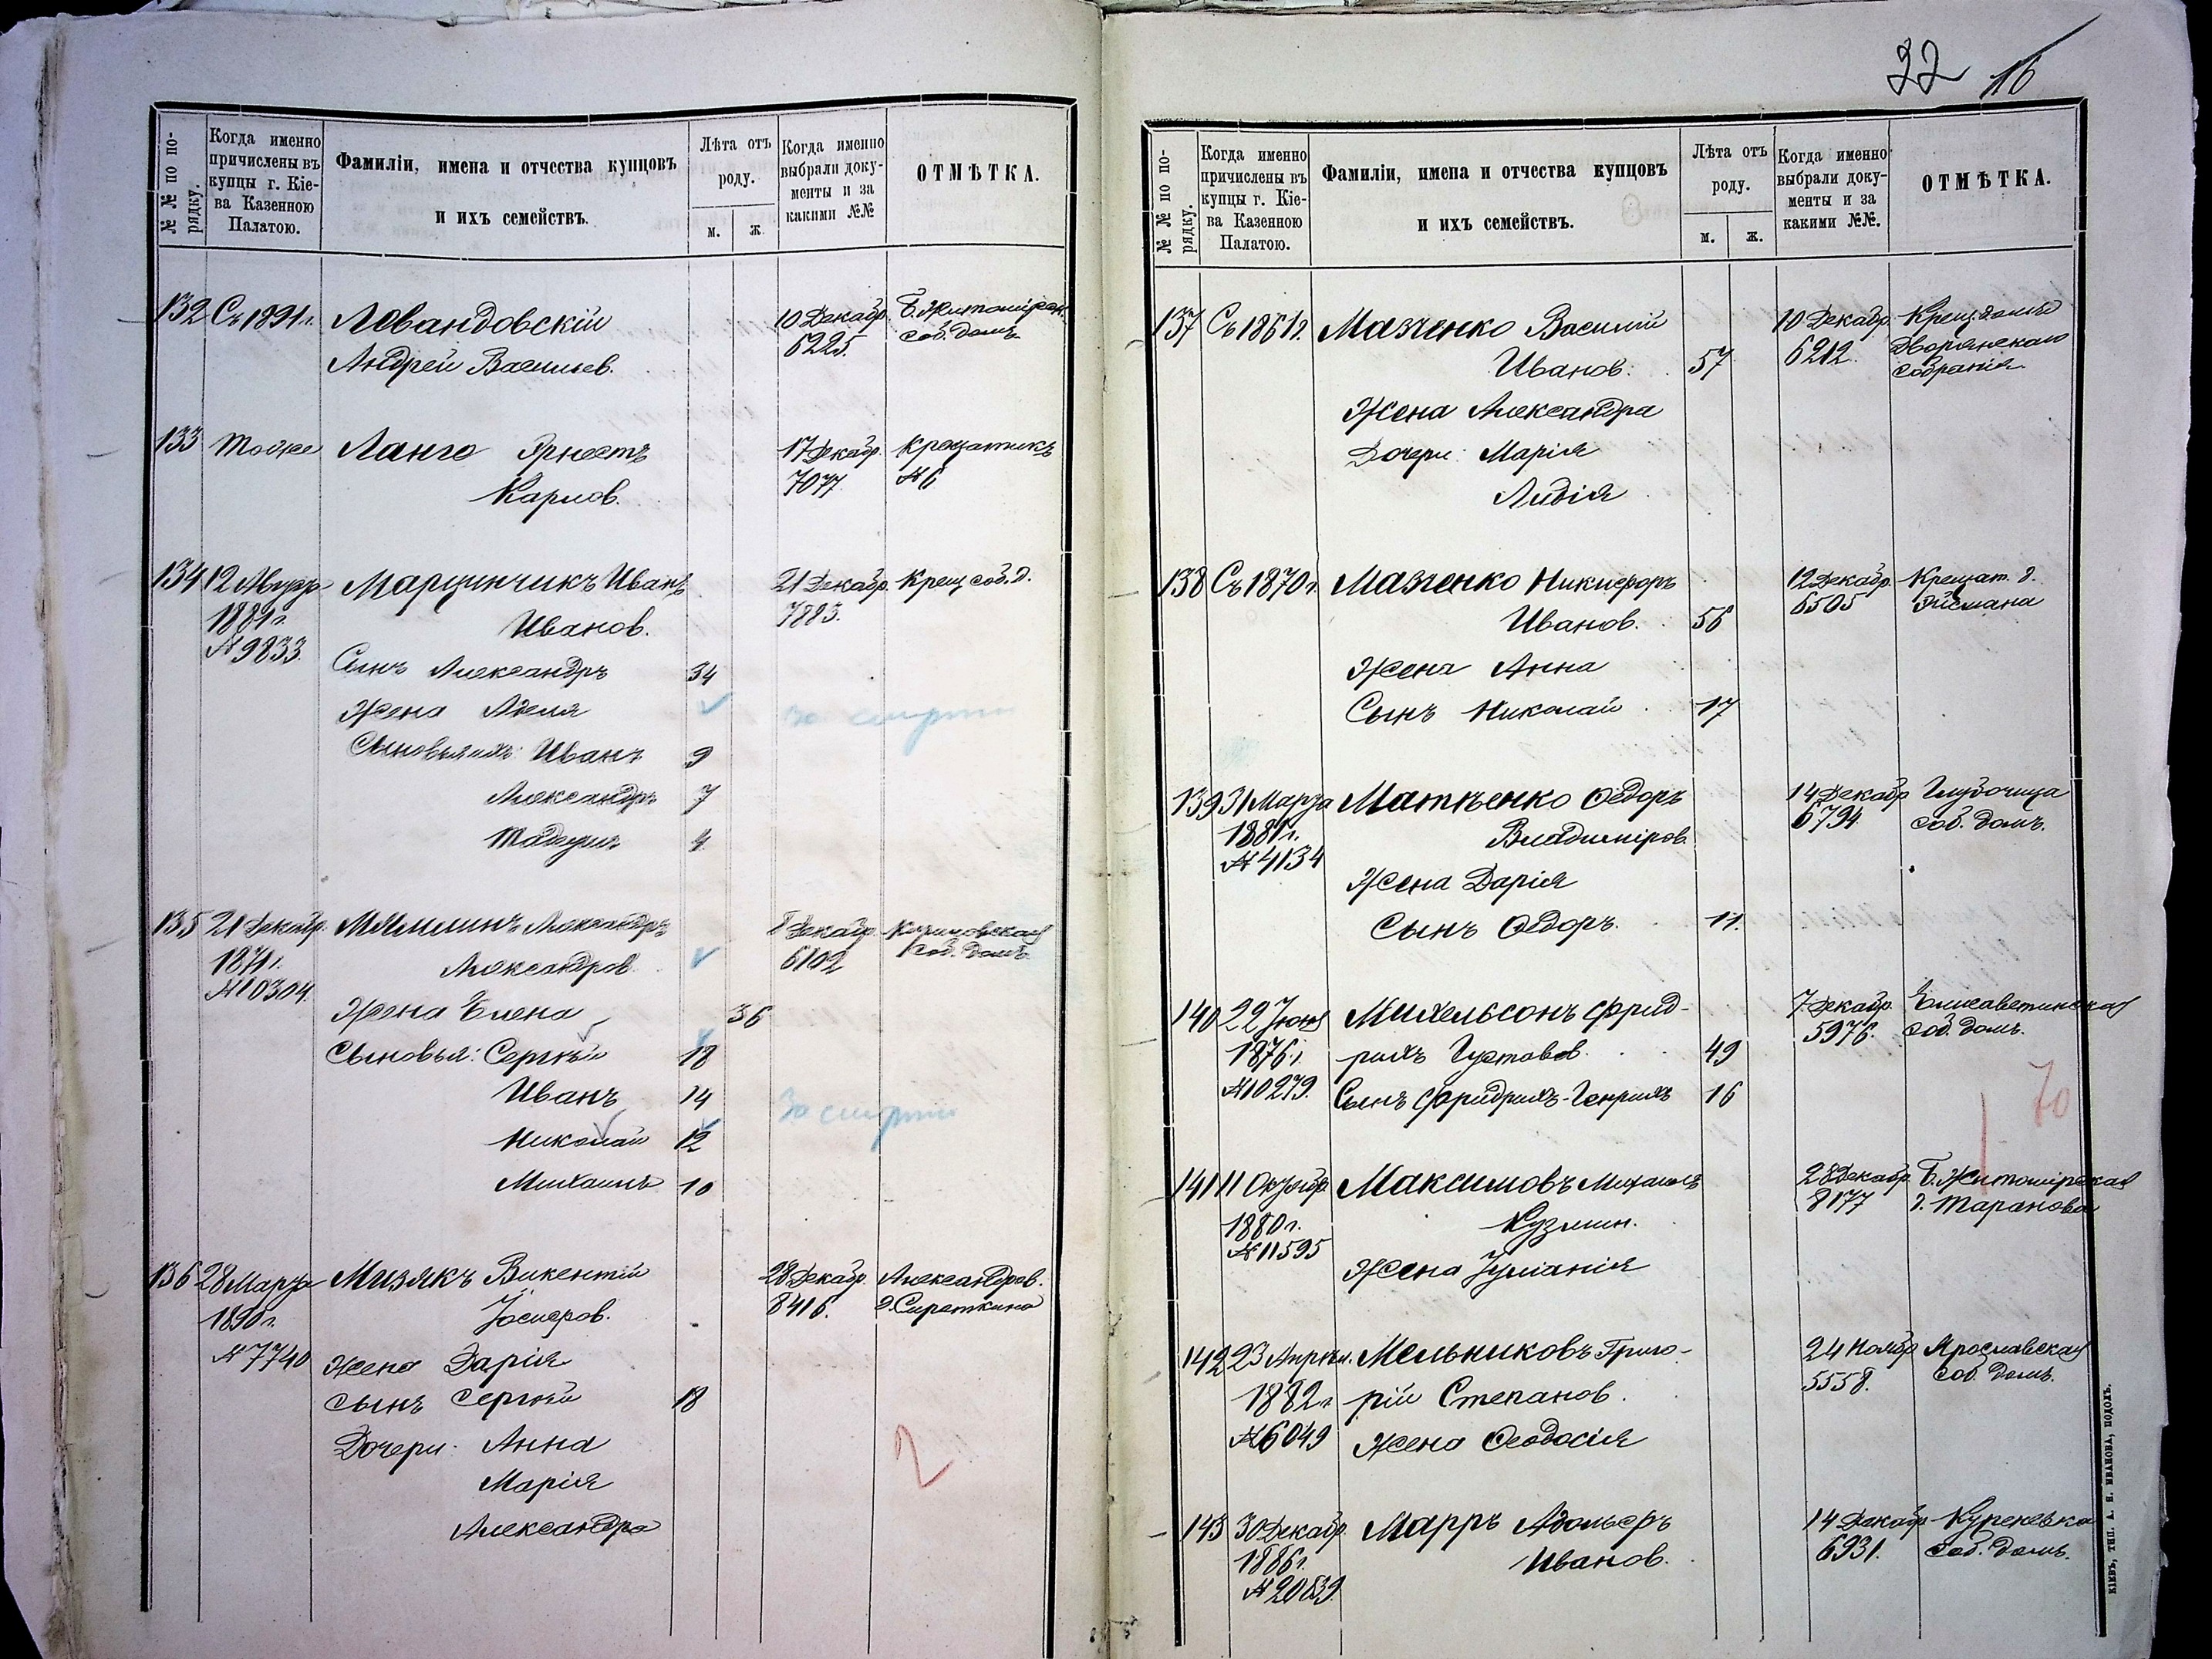 №№ по порядку.
Когда именно
причислены въ
купцы г. Кіе-
ва Казенною
Палатою.
Фамиліи, имена и отчества купцовъ
и ихъ семействъ.
Лѣта отъ
роду.
м. ж.
Когда именно
выбрали доку-
менты и за
какими №№
ОТМѢТКА.
132 Съ 1891 г. Левандовскій 10 Декабр. Б. Житомірск.
Андрей Васильев. 6225. соб. домъ.
133 Тоже Ланге Эрнестъ 17 Декабр. Крещатикъ
Карлов. 7077. № 6
134 12 Август. Марцинчикъ Иванъ 21 Декабр. Крещ. соб. д.
1881 г. Иванов. 7883.
№ 9833. Сынъ Александръ 34
Жена Аделя за смертію
Сыновья ихъ: Иванъ 9
Александръ 7
Тадеушъ 4
135 21 Декабр. Александръ 8 Декабр. соб. домъ
1871 г. Александров. 6102
№ 10304. Жена Елена 36
Сыновья: Сергѣй 18
Иванъ 14 За смертію
Николай 12
Михаилъ 10
136 28 Марта Мизякъ Викентій 28 Декабр. Александров.
1890 г. Іосифов. 8416. д. Сироткина
№ 7740 Жена Дарія
Сынъ Сергѣй 18
Дочери: Анна
Марія
Александра
2
22 16
№№ по порядку.
Когда именно
причислены въ
купцы г. Кіе-
ва Казенною
Палатою.
Фамиліи, имена и отчества купцовъ
и ихъ семействъ.
Лѣта отъ
роду.
м. ж.
Когда именно
выбрали доку-
менты и за
какими №№.
ОТМѢТКА.
137 Съ 1861 г. Мазченко Василій 10 Декабр. Крещ. домъ
Иванов. 57 6212. Дворянскаго
Жена Александра собранія
Дочери: Марія
Лидія
138 Съ 1870 г. Мазченко Никифоръ 12 Декабр. Крещат. д.
Иванов. 56 6505 Эйсмана
Жена Анна
Сынъ Николай 17
139 31 Марта Матвѣенко Ѳедоръ 14 Декабр. Глубочица
1881 г. Владиміров. 6794. соб. домъ.
№ 4134 Жена Дарія
Сынъ Ѳедоръ. 11.
140 22 Іюня Михельсонъ Фрид- 7 Декабр. Елисаветинская
1876 г. рихъ Густавов. 49 5976. соб. домъ.
№ 10279. Сынъ Фридрихъ-Генрихъ 16
70
141 11 Октябр. Максимовъ Михаилъ 28 Декабр. Б. Житомірская
1880 г. Кузмин. 8177 д. Таранова
№ 11595 Жена Іуліанія
142 23 Апрѣл. Мельниковъ Григо- 24 Ноябр. Ярославская
1882 г. рій Степанов. 5558. соб. домъ.
№ 6049 Жена Ѳеодосія
143 30 Декабр. Марръ Адольфъ 14 Декабр. Куреневка
1886 г. Иванов. 6931. соб. домъ.
№ 20839.
КІЕВЪ, ТИП. А. Н. ИВАНОВА, ПОДОЛЪ.